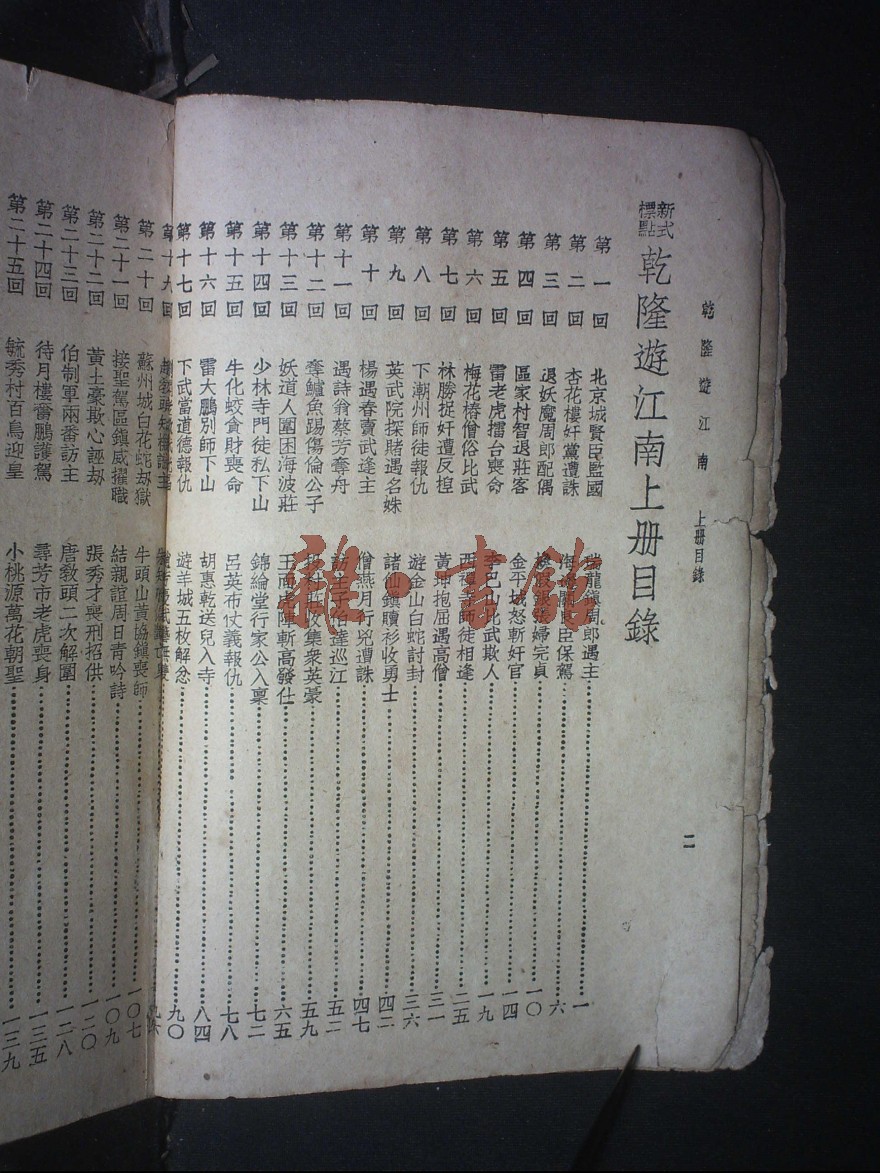 乾隆遊江南 上册目錄 二
新式標點 乾隆遊江南上册目錄
第一回 北京城賢臣監國 龍鎮周郎遇主 一
第二回 杏花樓奸黨遭誅 臣保駕 六
第三回 退妖魔周郎配偶 張婦完貞 一〇
第四回 區家村智退莊客 金平城怒斬奸官 一四
第五回 雷老虎擂台喪命 李巴山比武欺人 一九
第六回 梅花樁僧俗比武 西禪寺師徒相逢 二五
第七回 林勝捉奸遭反揑 黃坤抱屈遇高僧 三一
第八回 下潮州師徒報仇 遊金山白蛇討封 三六
第九回 英武院探賭遇名姝 諸仙鎮贖衫收勇士 四二
第十回 楊遇春賣武逢主 僧燕月行兇遭誅 四七
第十一回 遇詩翁蔡芳奪舟 訪主子伯達巡江 五二
第十二回 奪鱸魚踢傷倫公子 村莊收集衆英豪 五九
第十三回 妖道人圍困海波莊 玉面虎陣斬高發仕 六五
第十四回 少林寺門徒私下山 錦綸堂行家公入稟 七二
第十五回 牛化蛟貪財喪命 呂英布仗義報仇 七八
第十六回 雷大鵬別師下山 胡惠乾送兒入寺 八四
第十七回 下武當道德報仇 遊羊城五枚解忿 九〇
第十九回
第二十回 蘇州城白花蛇劫獄 牛頭山黃協鎮喪師 一〇七
第二十一回 接聖駕區鎮威擢職 結親誼周日青吟詩 一〇九
第二十二回 黃土豪欺心誣劫 張秀才喪刑招供 一二〇
第二十三回 伯制軍兩番訪主 唐敎頭二次解圍 一二八
第二十四回 待月樓奮鵬護駕 尋芳市老虎喪身 一三五
第二十五回 毓秀村百鳥迎皇 小桃源萬花朝聖 一三九
雜·書館